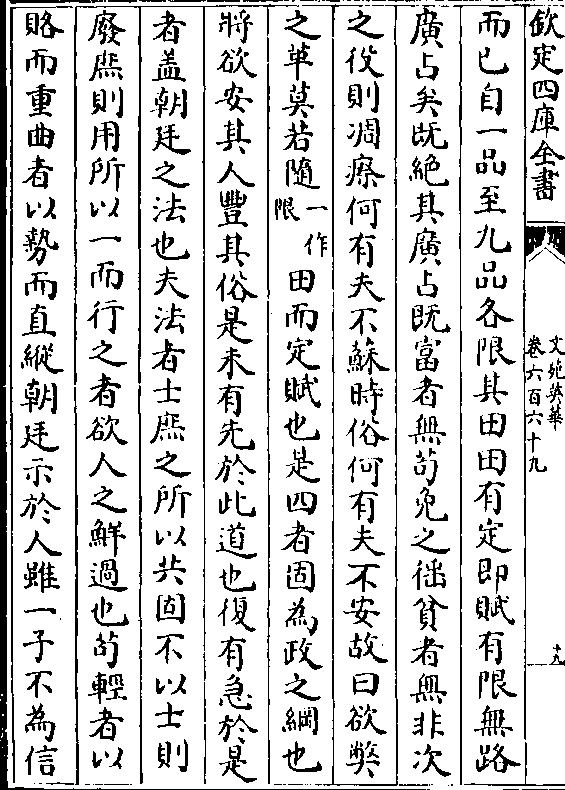 欽定四庫全書
文苑英華
卷六百六十九
十九
而已自一品至九品各限其田田有定即賦有限無路
廣占矣既絶其廣占既富者無茍免之徭貧者無非次
之役則凋瘵何有夫不蘇時俗何有夫不安故曰欲獘
之革莫若隨一作限田而定賦也是四者固為政之綱也
將欲安其人豐其俗是未有先於此道也復有急於是
者盖朝廷之法也夫法者士庶之所以共固不以士則
廢庶則用所以一而行之者欲人之鮮過也茍輕者以
賂而重曲者以勢而直縱朝廷示於人雖一子不為信